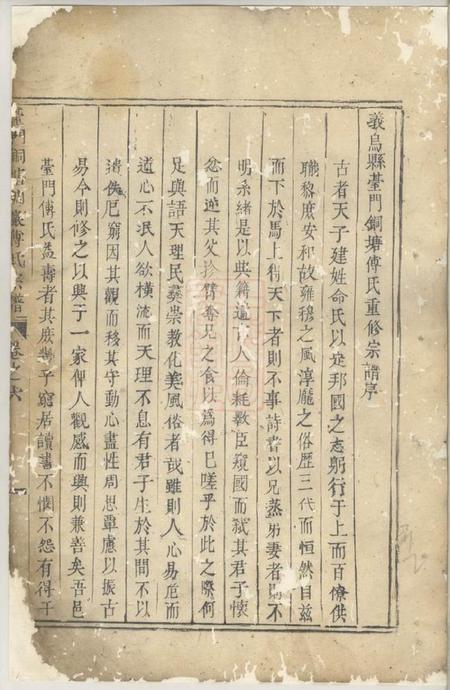 義烏縣臺門銅塘傅氏重修宗譜序
古者天子建姓命氏以定邦國之志躬行于上而百僚供
職黎庶安和故雍穆之風淳龐之俗歷三代而恒然自茲
而下於馬上得天下者則不事詩書以兄蒸弟妻者則不
明系緒是以典籍遺亡人倫耗斁臣窺國而弒其君子懷
忿而逆其父紾臂奪兄之食以爲得已嗟乎於此之際何
足與語天理民彝崇教化美風俗者哉雖則人心易危而
道心不泯人欲橫流而天理不息有君子生於其間不以
遺佚厄窮因其觀而移其守動心盡性周思覃慮以振古
易今則修之以興于一家俾人觀感而興則兼善矣吾邑
臺門傅氏益壽者其庶幾乎窮居讀書不懈不怨有得于
臺門銅塘 傅氏宗譜
卷之六